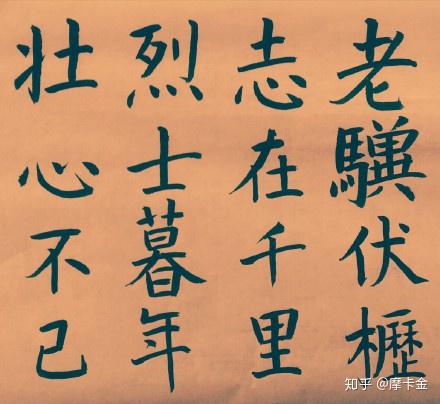 老驥伏櫪
志在千里
烈士暮年
壮心不已
知乎 @摩卡金